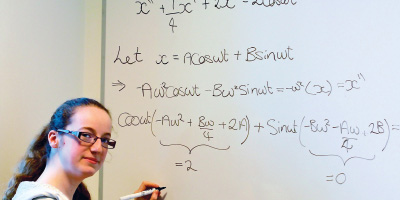 x'' + 1/4 x' + 2x = 2cosωt
Let x = Acosωt + Bsinωt
⇒ -Aω²cosωt - Bω²sinωt = -ω²(x) = x''
Cosωt(-Aω² + Bω/4 + 2A) + Sinωt(-Bω² - Aω/4, 2B) =
= 2
= 0